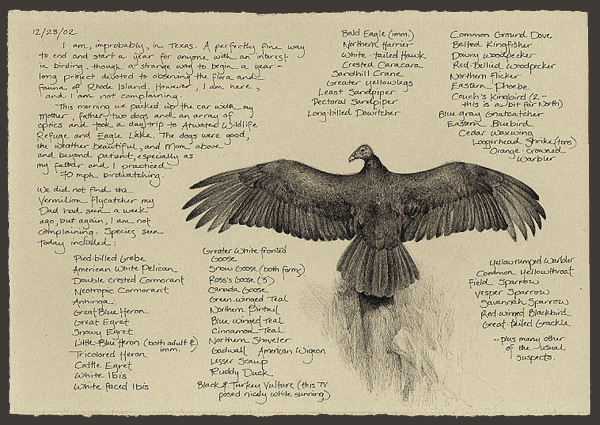 12/28/02
I am, improbably, in Texas. A perfectly fine way
to end and start a year for anyone with an interest
in birding, though a strange way to begin a year-
long project devoted to observing the flora and
fauna of Rhode Island. However, I am here,
and I am not complaining.
This morning we packed up the car with my
mother, father, two dogs and an array of
optics and took a day trip to Attwater Wildlife
Refuge and Eagle Lake. The dogs were good,
the weather beautiful, and Mom above
and beyond patient, especially as
my father and I practiced
70 mph birdwatching.
We did not find the
Vermilion Flycatcher my
Dad had seen a week
ago, but again, I am not
complaining. Species seen
today included:
Pied-billed Grebe
American White Pelican
Double crested Cormorant
Neotropic Cormorant
Anhinga
Great Blue Heron
Great Egret
Snowy Egret
Little Blue Heron (both adult & imm.)
Tricolored Heron
Cattle Egret
White Ibis
White faced Ibis
Greater White fronted
Goose
Snow Goose (both forms)
Ross's Goose (3)
Canada Goose
Green-winged Teal
Northern Pintail
Blue-winged Teal
Cinnamon Teal
Northern Shoveler
Gadwall American Wigeon
Lesser Scaup
Ruddy Duck
Black & Turkey Vulture (this TV
posed nicely while sunning)
Bald Eagle (imm.)
Northern Harrier
White-tailed Hawk
Crested Caracara
Sandhill Crane
Greater yellowlegs
Least Sandpiper
Pectoral Sandpiper
Long-billed Dowitcher
Common Ground Dove
Belted Kingfisher
Downy Woodpecker
Red-bellied Woodpecker
Northern Flicker
Eastern Phoebe
Couch's Kingbird (2-
this is a bit far North)
Blue-gray Gnatcatcher
Eastern Bluebird
Cedar waxwing
Loggerhead Shrike (tons)
Orange-crowned
Warbler
Yellow rumped Warbler
Common Yellowthroat
Field Sparrow
Vesper Sparrow
Savannah Sparrow
Red-winged Blackbird
Great-tailed Grackle
- plus many other
of the usual
suspects.